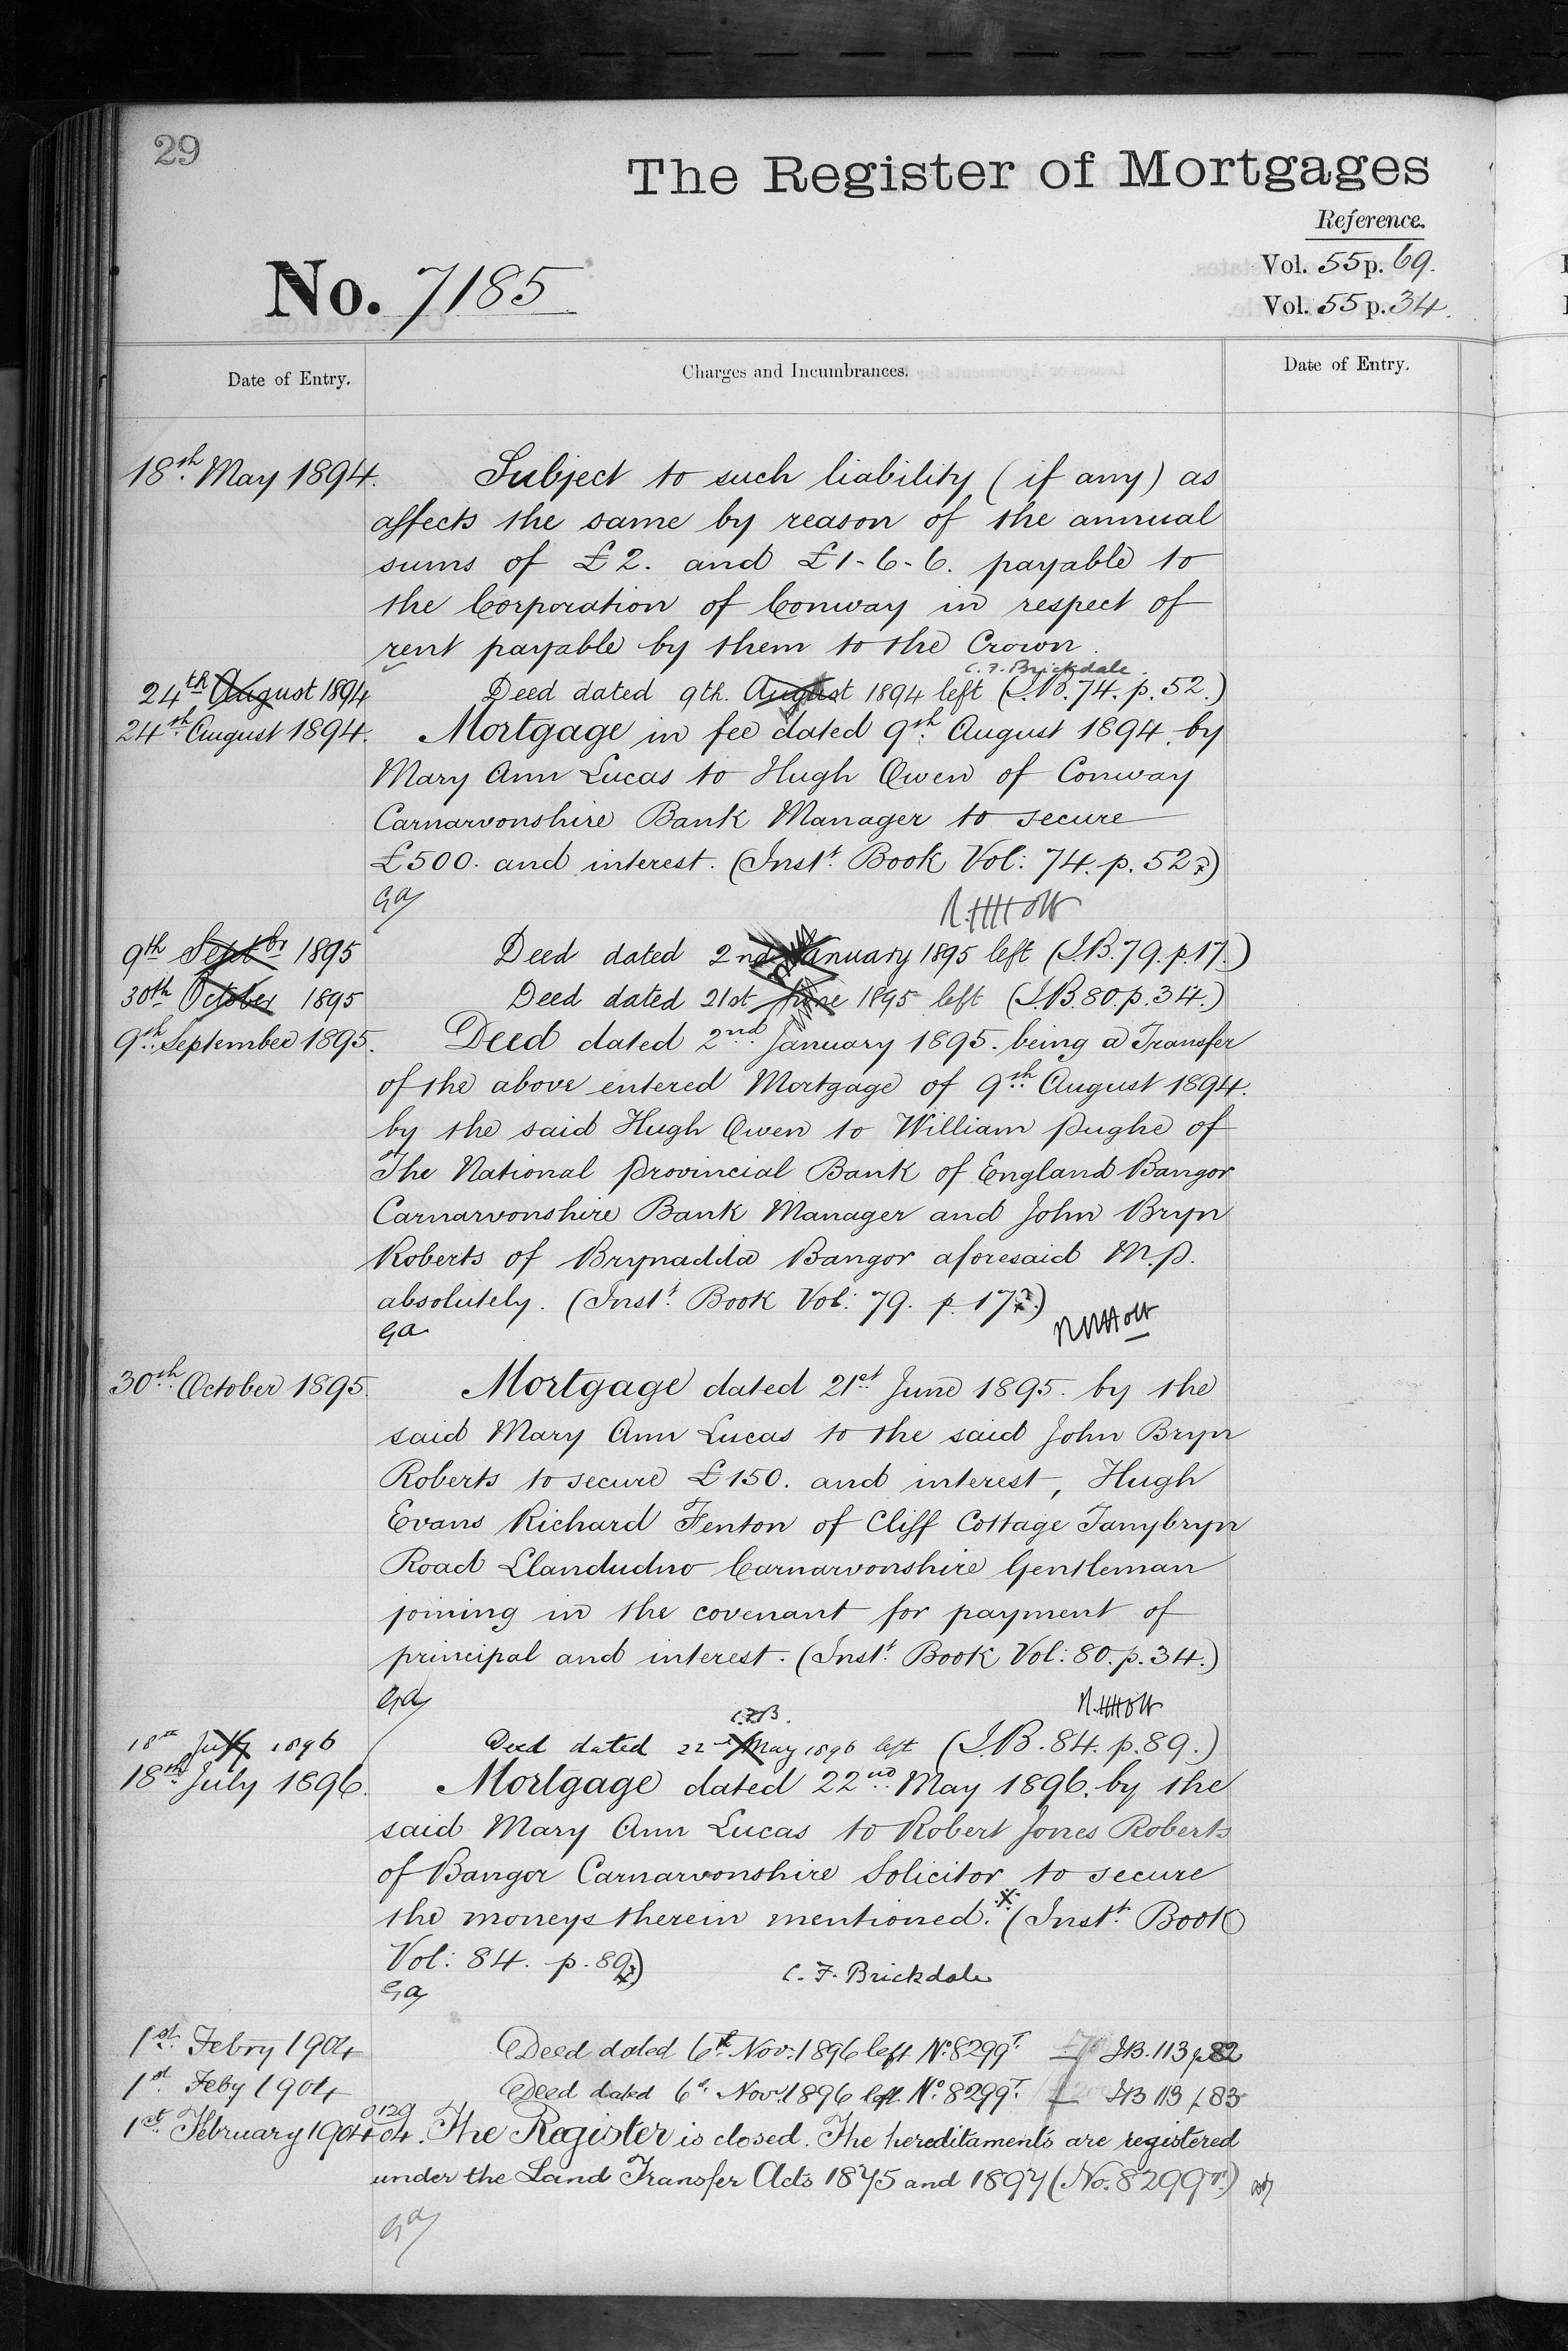 29
The Register of Mortgages
Reference.
Vol. 55 p. 69.
No. 7185
Vol. 55 p. 34.
Date of Entry.
Charges and Incumbrances.
Date of Entry.
18th May 1894. Subject to such liability (if any) as
affects the same by reason of the annual
sums of £2. and £1-6-6. payable to
the Corporation of Conway in respect of
rent payable by them to the Crown.
C. F. Brickdale.
24th August 1894 Deed dated 9th. August 1894 left (I.B. 74. p. 52.)
24th August 1894. Mortgage in fee dated 9th August 1894. by
Mary Ann Lucas to Hugh Owen of Conway
Carnarvonshire Bank Manager to secure
£500. and interest. (Inst. Book Vol: 74. p. 52.)
Ga
9th Septbr 1895 Deed dated 2nd January 1895 left (I.B. 79. p. 17.)
30th October 1895 Deed dated 21st June 1895 left (I.B. 80. p. 34.)
9th September 1895. Deed dated 2nd January 1895. being a Transfer
of the above entered Mortgage of 9th August 1894.
by the said Hugh Owen to William Pughe of
The National Provincial Bank of England Bangor
Carnarvonshire Bank Manager and John Bryn
Roberts of Brynadda Bangor aforesaid M.P.
absolutely. (Inst. Book Vol: 79. p. 17.)
Ga
30th October 1895. Mortgage dated 21st June 1895. by the
said Mary Ann Lucas to the said John Bryn
Roberts to secure £150. and interest, Hugh
Evans Richard Fenton of Cliff Cottage Tanybryn
Road Llandudno Carnarvonshire Gentleman
joining in the covenant for payment of
principal and interest. (Inst. Book Vol: 80. p. 34.)
Ga
C.F.B.
18th July 1896 Deed dated 22nd May 1896 left (I.B. 84. p. 89.)
18th July 1896. Mortgage dated 22nd May 1896. by the
said Mary Ann Lucas to Robert Jones Roberts
of Bangor Carnarvonshire Solicitor to secure
the moneys therein mentioned. (Inst. Book
Vol: 84. p. 89.)
C. F. Brickdale
Ga
1st Febry 1904 Deed dated 6th Nov. 1896 left No. 8299T. I.B. 113 p 82
1st Feby 1904 Deed dated 6th Nov. 1896 left No. 8299T. I.B 113 p. 83
1st February 1904 The Register is closed. The hereditaments are registered
under the Land Transfer Acts 1875 and 1897 (No. 8299T.)
Ga